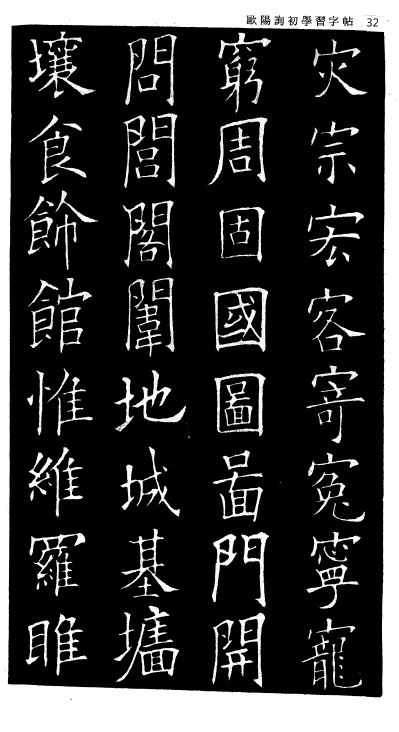 歐陽詢初學習字帖 32
灾宗宏客寄寃寧寵
窮周固國圖啚門開
問閭閣闈地城基墻
壤食飾館惟維羅睢